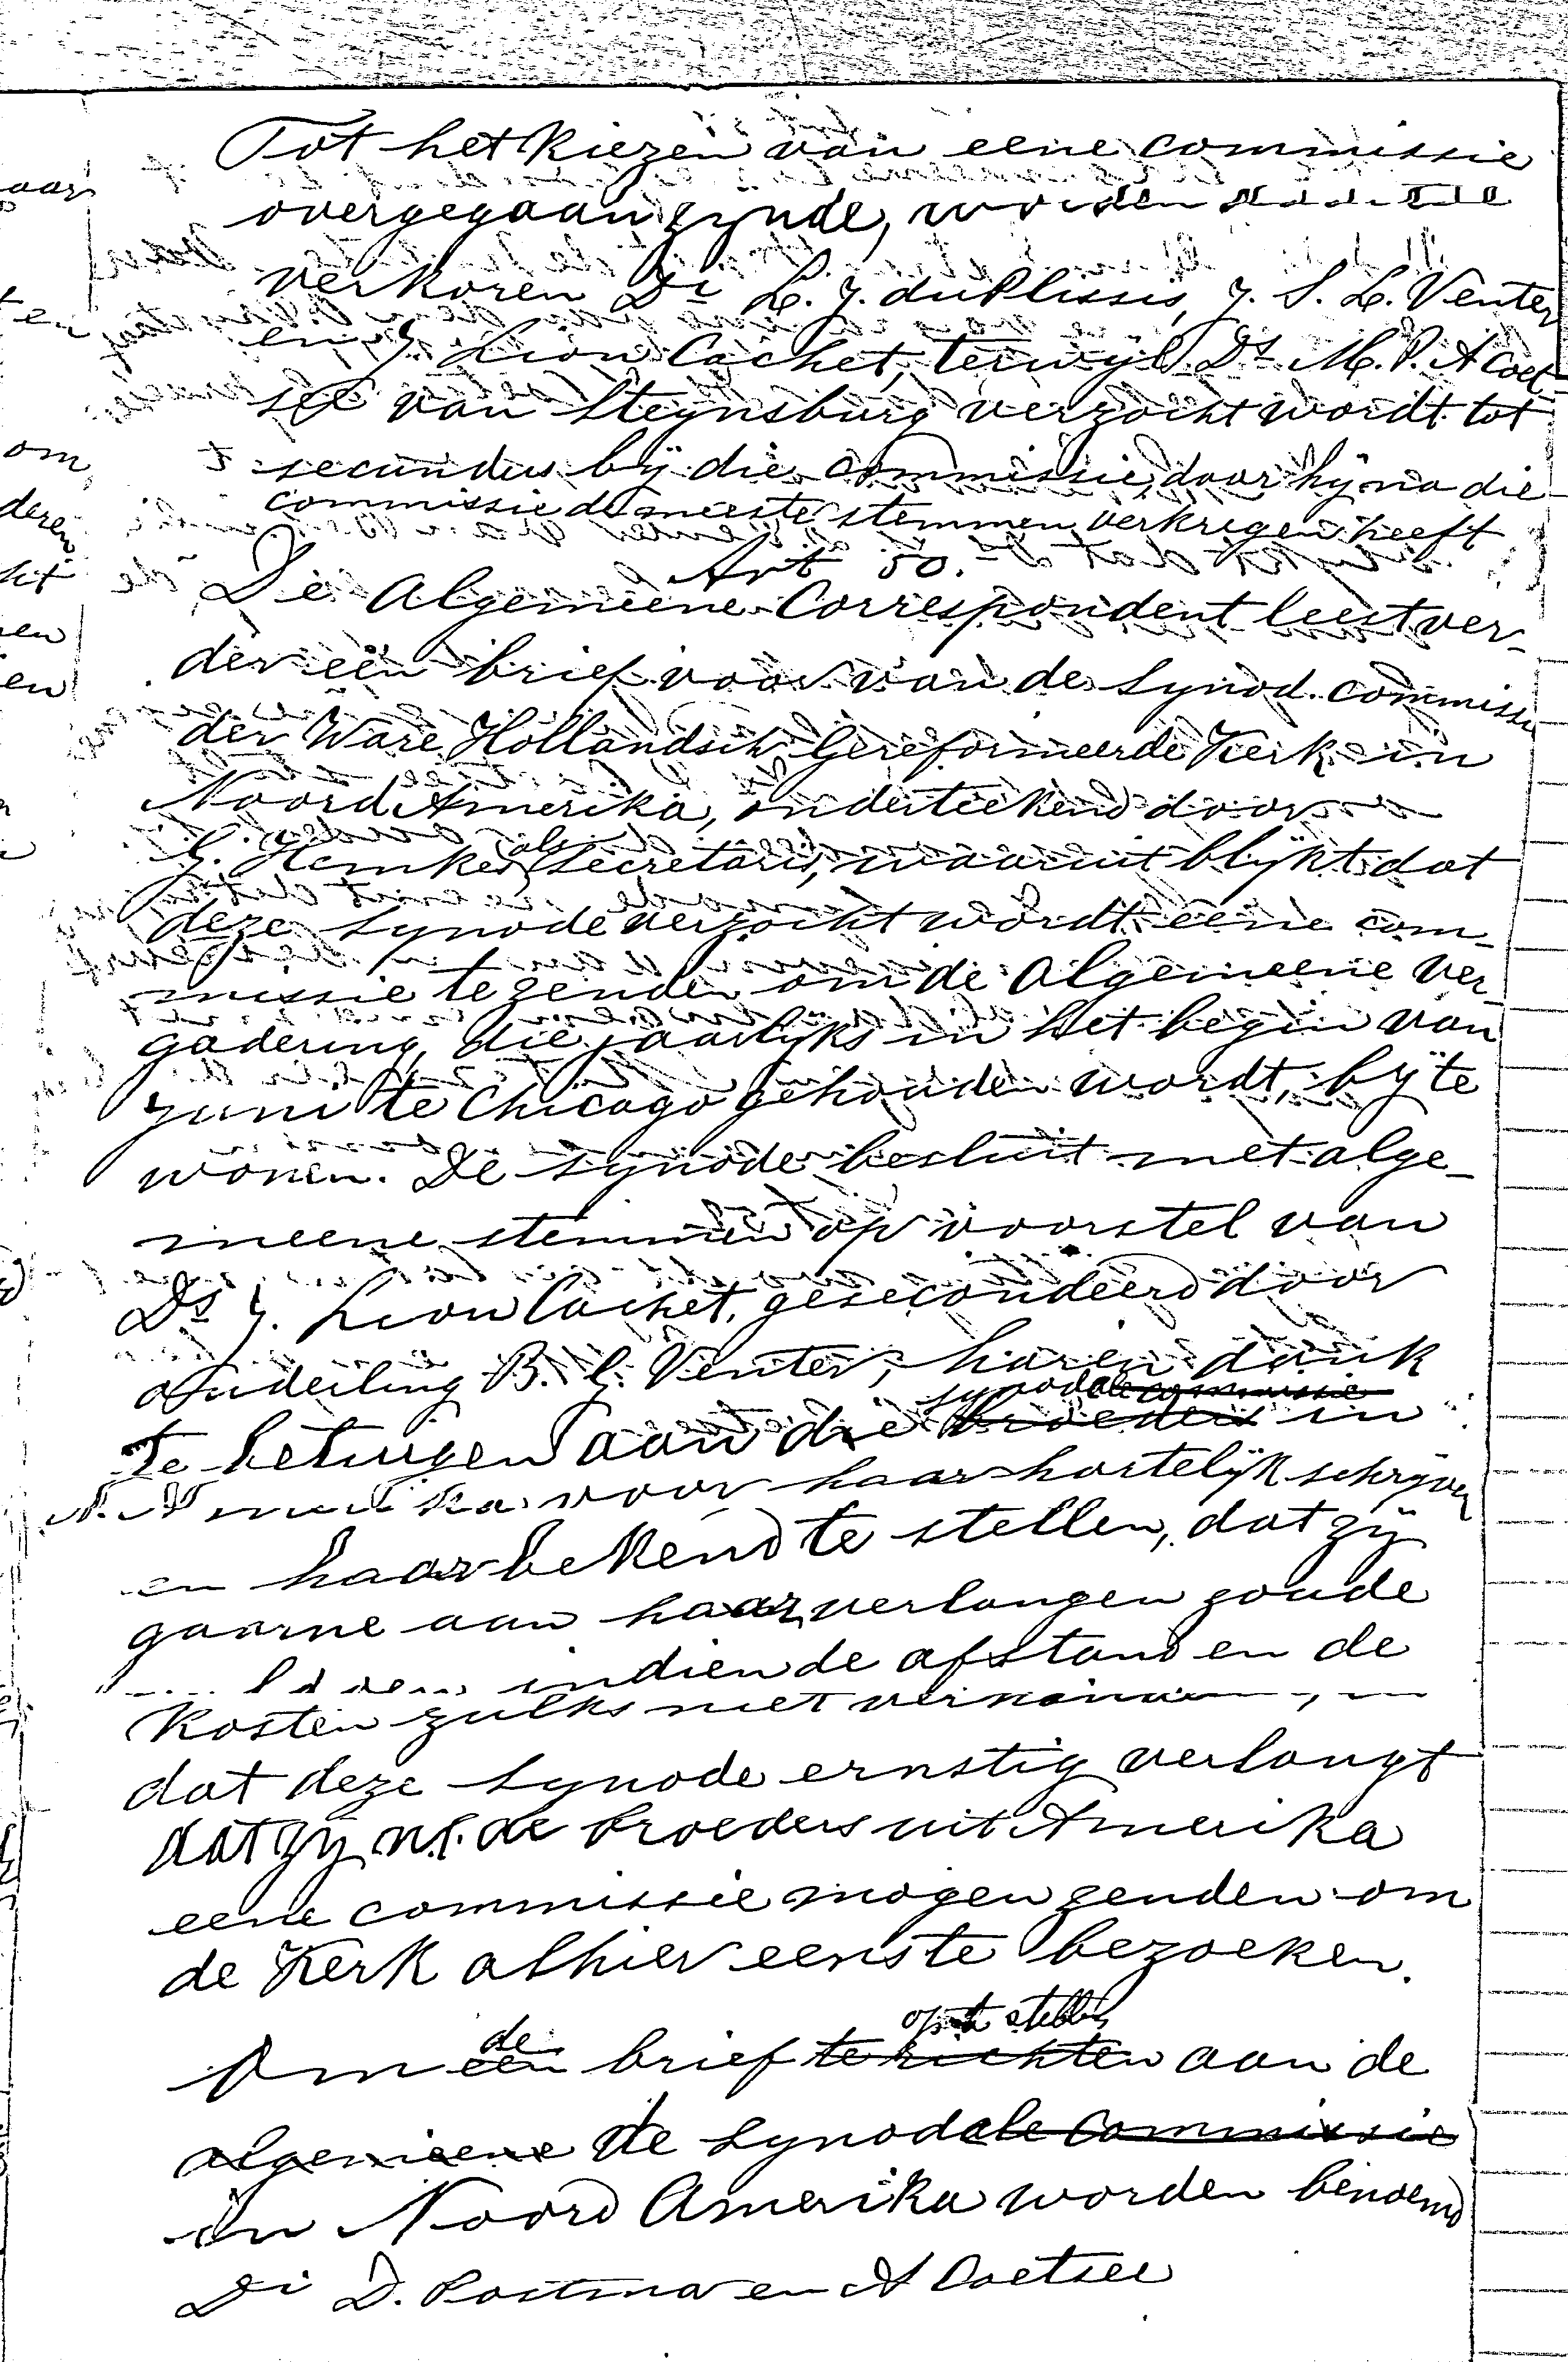 Tot het kiezen van eene commissie
overgegaan zynde, worden
verkoren Di L. J. du Plessis, J. S. L. Venter
en J. Lion Cachet, terwyl Ds M. P. A Coet-
see van Steynsburg verzocht wordt tot
secundus bÿ die commissie, daar hÿ na die
commissie de meeste stemmen verkregen heeft
Art 50.
De Algemeene Correspondent leest ver-
der een brief voor van de Synod. commissie
der Ware Hollandsch Gereformeerde Kerk in
Noord Amerika, onderteekend door
G. Hemkes als Secretaris, waaruit blÿkt dat
deze Synode verzocht wordt eene com-
missie te zenden om de Algemeene Ver-
gadering, die jaarlÿks in het begin van
Juni te Chicago gehouden wordt, bÿ te
wonen. De Synode besluit met alge-
meene stemmen op voorstel van
Ds J. Lion Cachet, gesecondeerd door
ouderling B. J. Venter, haren dank
synodale commissie
te betuigen aan die broeders in
N. Amerika voor haar hartelÿk schrÿven
en haar bekend te stellen, dat zÿ
gaarne aan haar verlangen zoude
indien de afstand en de
kosten zulks niet
dat deze Synode ernstig verlangt
dat zÿ n.l. de broeders uit Amerika
eene commissie mogen zenden om
de Kerk alhier eens te bezoeken.
de op te stellen
Om een brief te richten aan de
algemeene de Synodale Commissie
in Noord Amerika worden benoemd
Di D. Postma en A Coetsee